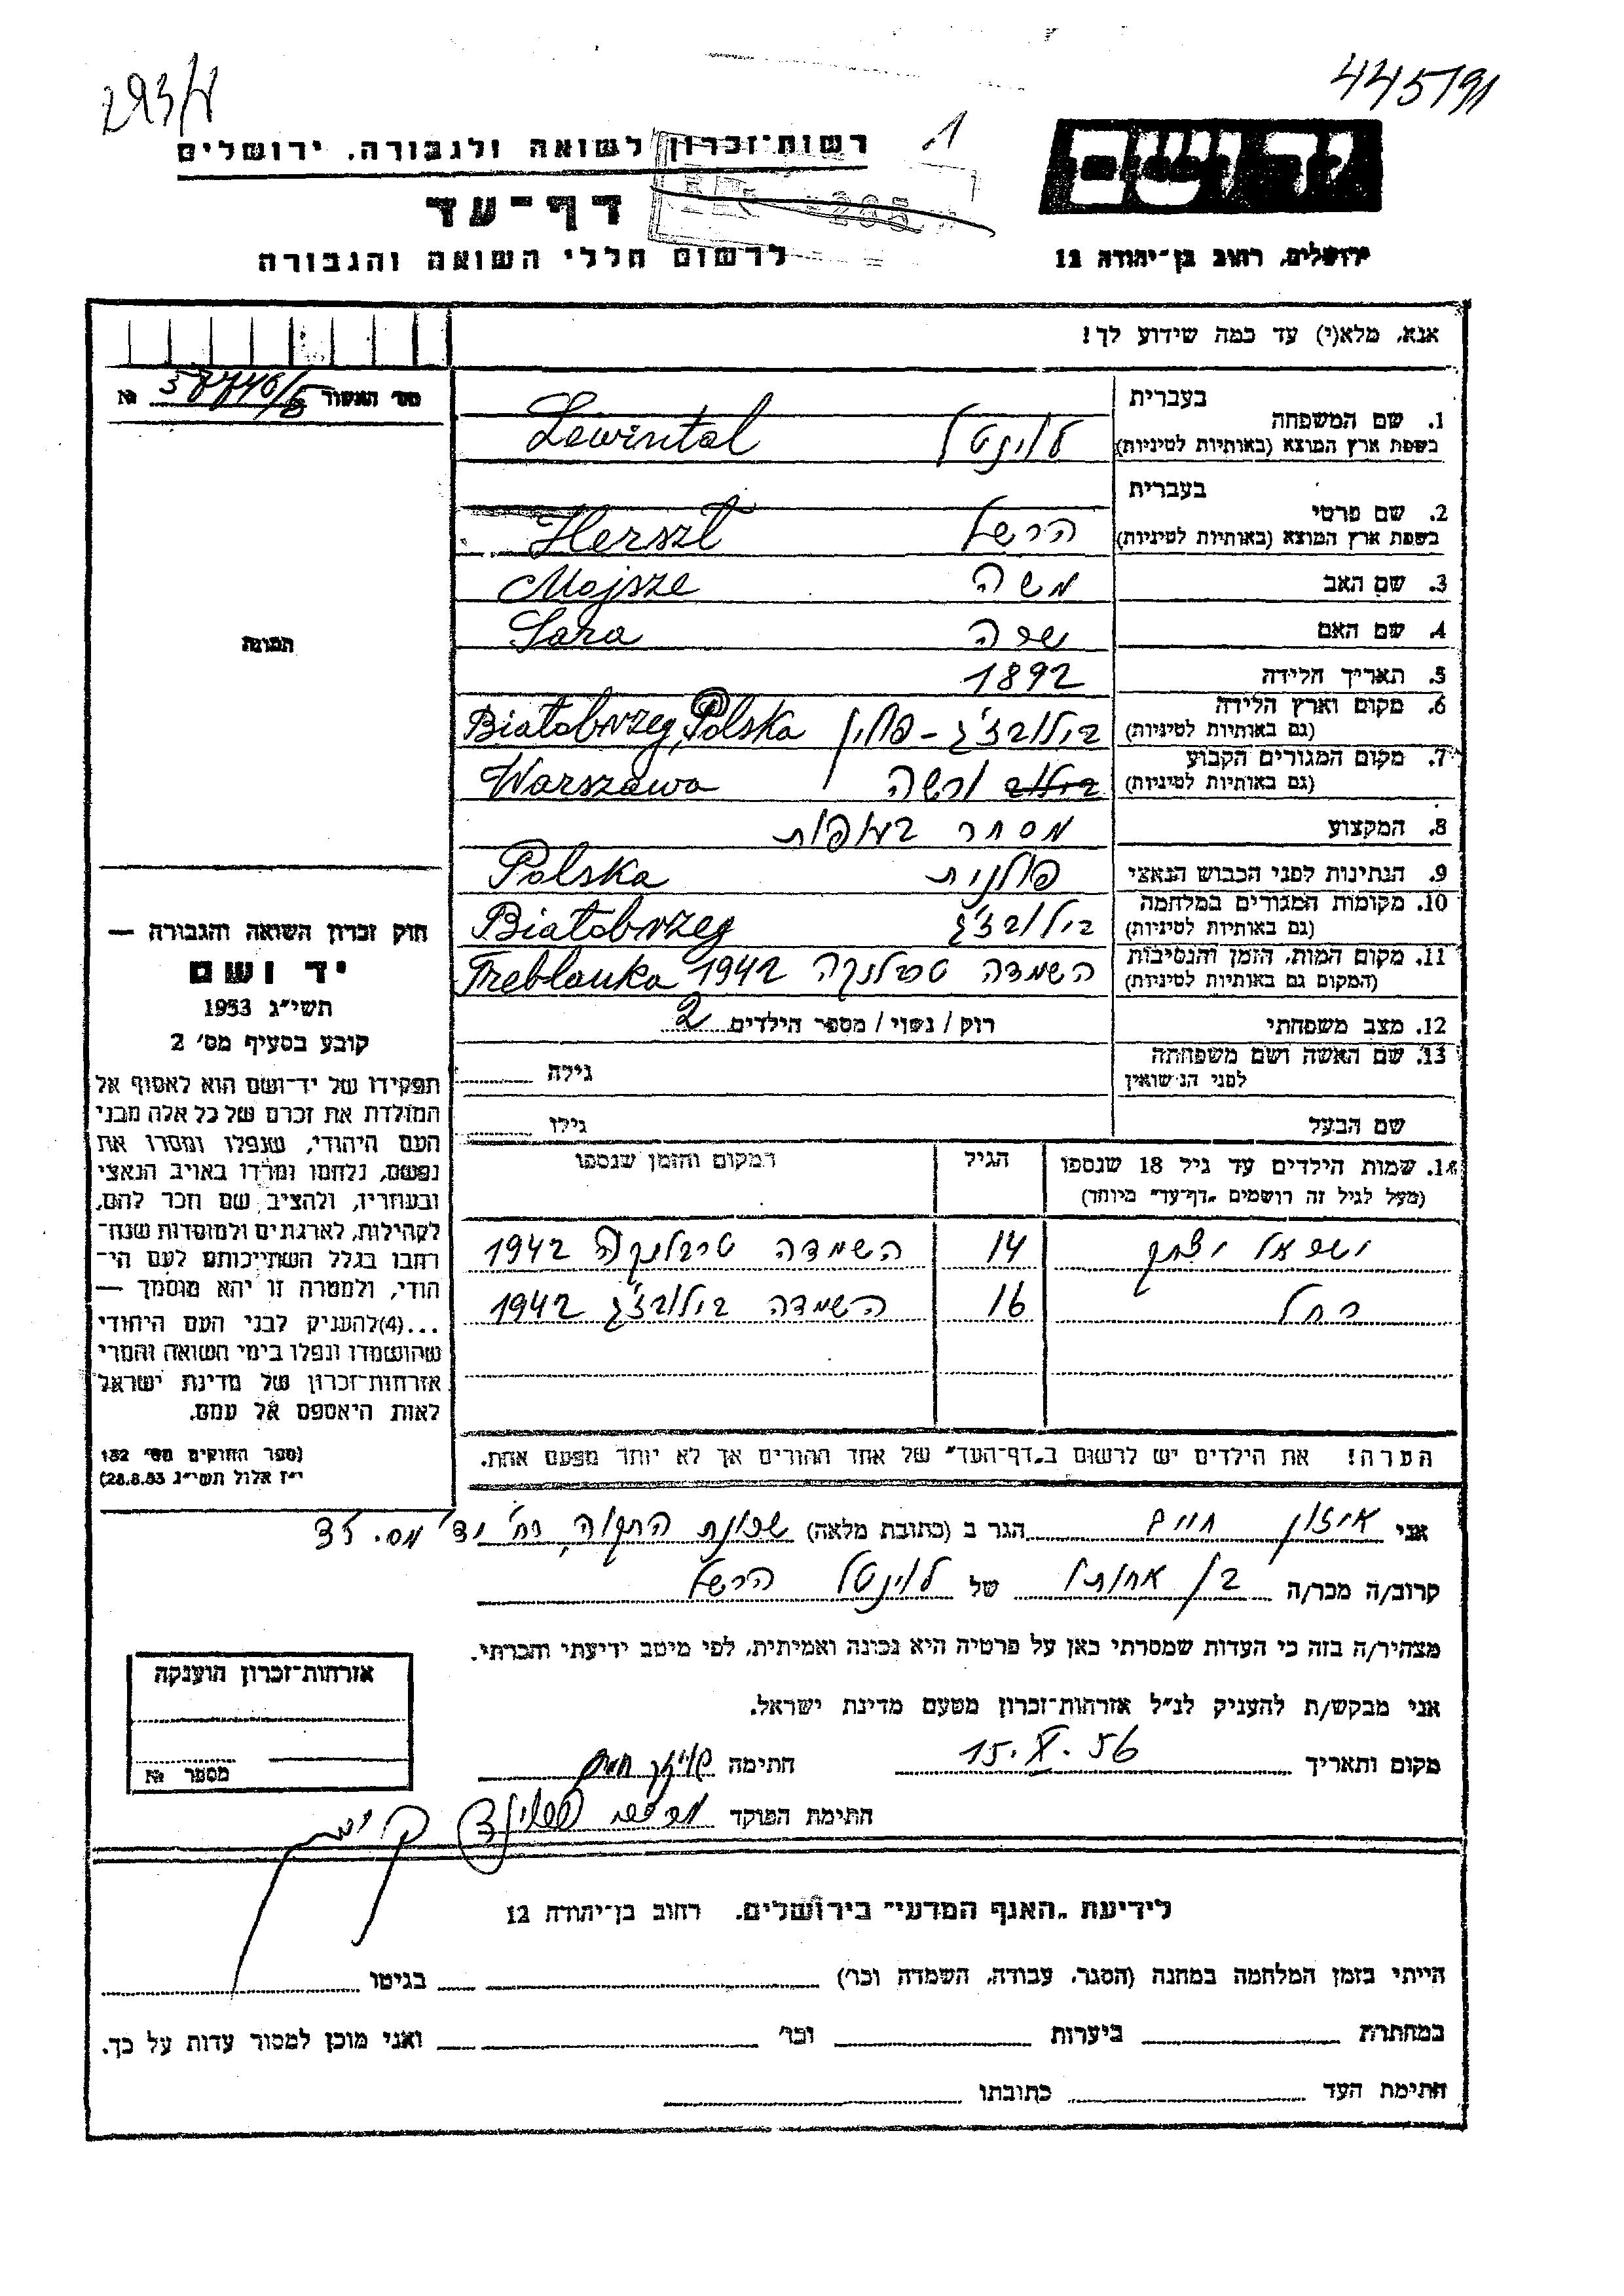 293/4
445791
1
רשות־זכרון לשואה ולגבורה, ירושלים
דף־עד
לרשום חללי השואה והגבורה
יד ושם
ירושלים, רחוב בן־יהודה 12
אנא, מלא(י) עד כמה שידוע לך!
מס' האשור № 37746/6
התמונה
חוק זכרון השואה והגבורה —
יד ושם
תשי"ג 1953
קובע בסעיף מס' 2
תפקידו של יד־ושם הוא לאסוף אל
המולדת את זכרם של כל אלה מבני
העם היהודי, שנפלו ומסרו את
נפשם, נלחמו ומרדו באויב הנאצי
ובעוזריו, ולהציב שם וזכר להם,
לקהילות, לארגונים ולמוסדות שנח־
רבו בגלל השתייכותם לעם הי־
הודי, ולמטרה זו יהא מוסמך —
...(4)להעניק לבני העם היהודי
שהושמדו ונפלו בימי השואה והמרי
אזרחות־זכרון של מדינת ישראל
לאות היאספם אל עמם.
(ספר החוקים מס' 132
י"ז אלול תשי"ג 28.8.53)
1. שם המשפחה בעברית
בשפת ארץ המוצא (באותיות לטיניות) לוינטל Lewintal
2. שם פרטי בעברית
בשפת ארץ המוצא (באותיות לטיניות) הרשל Herszl
3. שם האב משה Mojsze
4. שם האם שרה Sara
5. תאריך הלידה 1892
6. מקום וארץ הלידה
(גם באותיות לטיניות) בילוברז'ג - פולין Białobrzeg, Polska
7. מקום המגורים הקבוע
(גם באותיות לטיניות) ורשה Warszawa
8. המקצוע מסחר בעופות
9. הנתינות לפני הכבוש הנאצי פולנית Polska
10. מקומות המגורים במלחמה
(גם באותיות לטיניות) בילוברז'ג Białobrzeg
11. מקום המות, הזמן והנסיבות
(המקום גם באותיות לטיניות) השמדה טרבלנקה 1942 Treblanka
12. מצב משפחתי רוק / נשוי / מספר הילדים 2
13. שם האשה ושם משפחתה
לפני הנישואין גילה
שם הבעל גילו
14. שמות הילדים עד גיל 18 שנספו הגיל המקום והזמן שנספו
(מעל לגיל זה רושמים "דף־עד" מיוחד)
ישראל יצחק 14 השמדה טרבלנקה 1942
רחל 16 השמדה בילוברז'ג 1942
הערה! את הילדים יש לרשום ב"דף־העד" של אחד ההורים אך לא יותר מפעם אחת.
אני איזון חיים הגר ב (כתובת מלאה) שכונת התקוה, רח' יד' מס. 37
קרוב/ה מכר/ה בן אחותו של לוינטל הרשל
מצהיר/ה בזה כי העדות שמסרתי כאן על פרטיה היא נכונה ואמיתית, לפי מיטב ידיעתי והכרתי.
אני מבקש/ת להעניק לנ"ל אזרחות־זכרון מטעם מדינת ישראל.
מקום ותאריך 15.X.56 חתימה
חתימת הפוקד
אזרחות־זכרון הוענקה
מספר №
לידיעת "האגף המדעי" בירושלים, רחוב בן־יהודה 12
הייתי בזמן המלחמה במחנה (הסגר, עבודה, השמדה וכו') בגיטו
במחתרת ביערות וכו' ואני מוכן למסור עדות על כך.
חתימת העד כתובתו